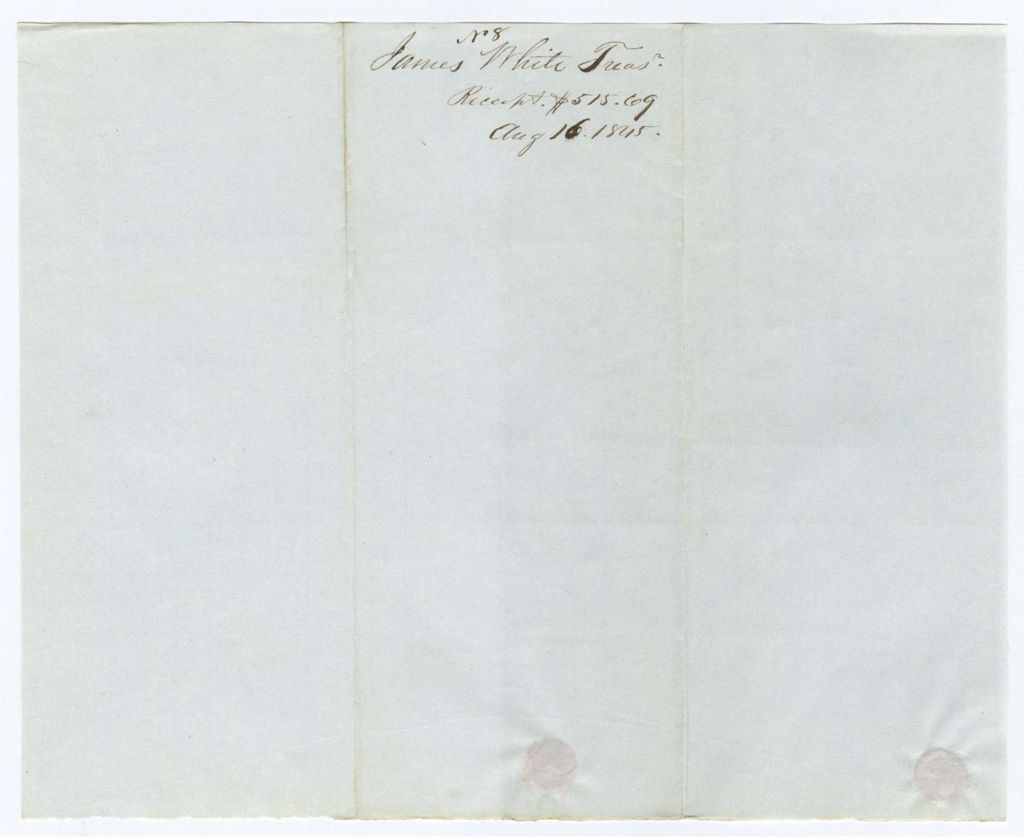 No 8
James White Treasr.
Receipt. $515.69
Aug 16. 1845.